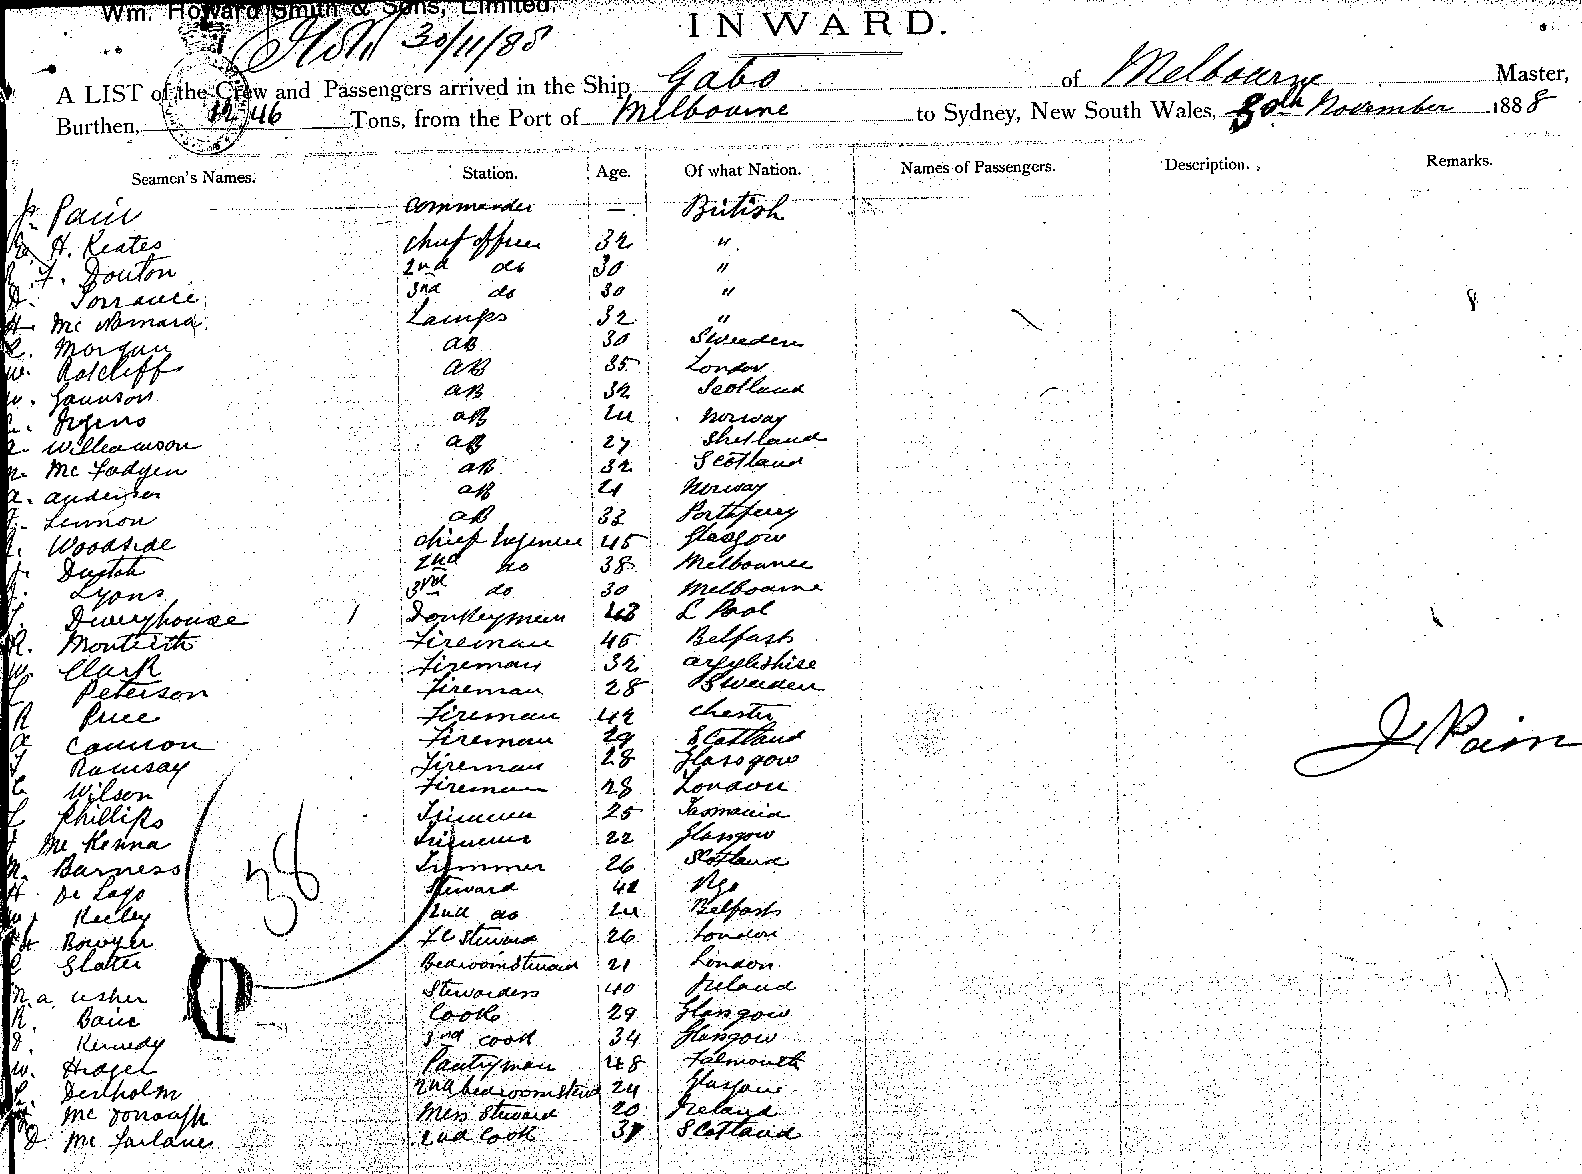 Wm. Howard Smith & Sons, Limited.
INWARD.
30/11/88
A LIST of the Crew and Passengers arrived in the Ship Gabo of Melbourne Master,
Burthen, Tons, from the Port of Melbourne to Sydney, New South Wales, 30th November 1888
Seamen's Names. Station. Age. Of what Nation. Names of Passengers. Description. Remarks.
J. Pain commander — British
H. Keates chief officer 32 "
F. Douton 2nd do 30 "
Torrance 3rd do 30 "
Mc Namara Lamps 32 "
Morgan AB 30 Sweeden
W. Ratcliff AB 35 London
W. AB 32 Scotland
AB 24 Norway
Williamson AB 27 Shetland
Mc Fadyen AB 32 Scotland
A. Andersen AB 21 Norway
Lennon AB 33 Portaferry
Woodside chief Engineer 45 Glasgow
2nd do 38 Melbourne
Lyons 3rd do 30 Melbourne
Dweryhouse 1 Donkeyman L Pool
R. Montieth Fireman 45 Belfast
W. Clark Fireman 32 Argyleshire
Peterson Fireman 28 Sweeden
R Price Fireman 42 Chester
A Cannon Fireman 29 Scotland
Ramsay Fireman 28 Glasgow
C Wilson Fireman 28 London
Phillips Trimmer 25 Tasmania
Mc Kenna Trimmer 22 Glasgow
Barness Trimmer 26 Scotland
H De Lago Steward 42
W Keeley 2nd do 24 Belfast
Bowyer Steward 26 London
Slater Bedroomsteward 21 London
A. Usher Stewardess 40 Ireland
R. Bain Cook 29 Glasgow
Kennedy 3rd cook 34 Glasgow
W. Pantryman 48 Falmouth
Denholm 2nd bedroomstewd 24 Glasgow
Mc Donough Mess Steward 20 Ireland
D Mc Farlane 2nd Cook Scotland
38
J Pain